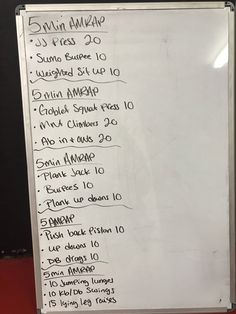 5 min AMRAP
• JJ Press 20
• Sumo Burpee 10
• Weighted Sit up 10
5min AMRAP
• Goblet Squat press 10
• Mnt Climbers 20
• Ab in + outs 20
5min AMRAP
• Plank Jack 10
• Burpees 10
• Plank up downs 10
5 AMRAP
• Push back Piston 10
• up downs 10
• DB drags 10
5min AMRAP
• 10 Jumping lunges
• 10 Kb/Db Swings
• 15 lying leg raises